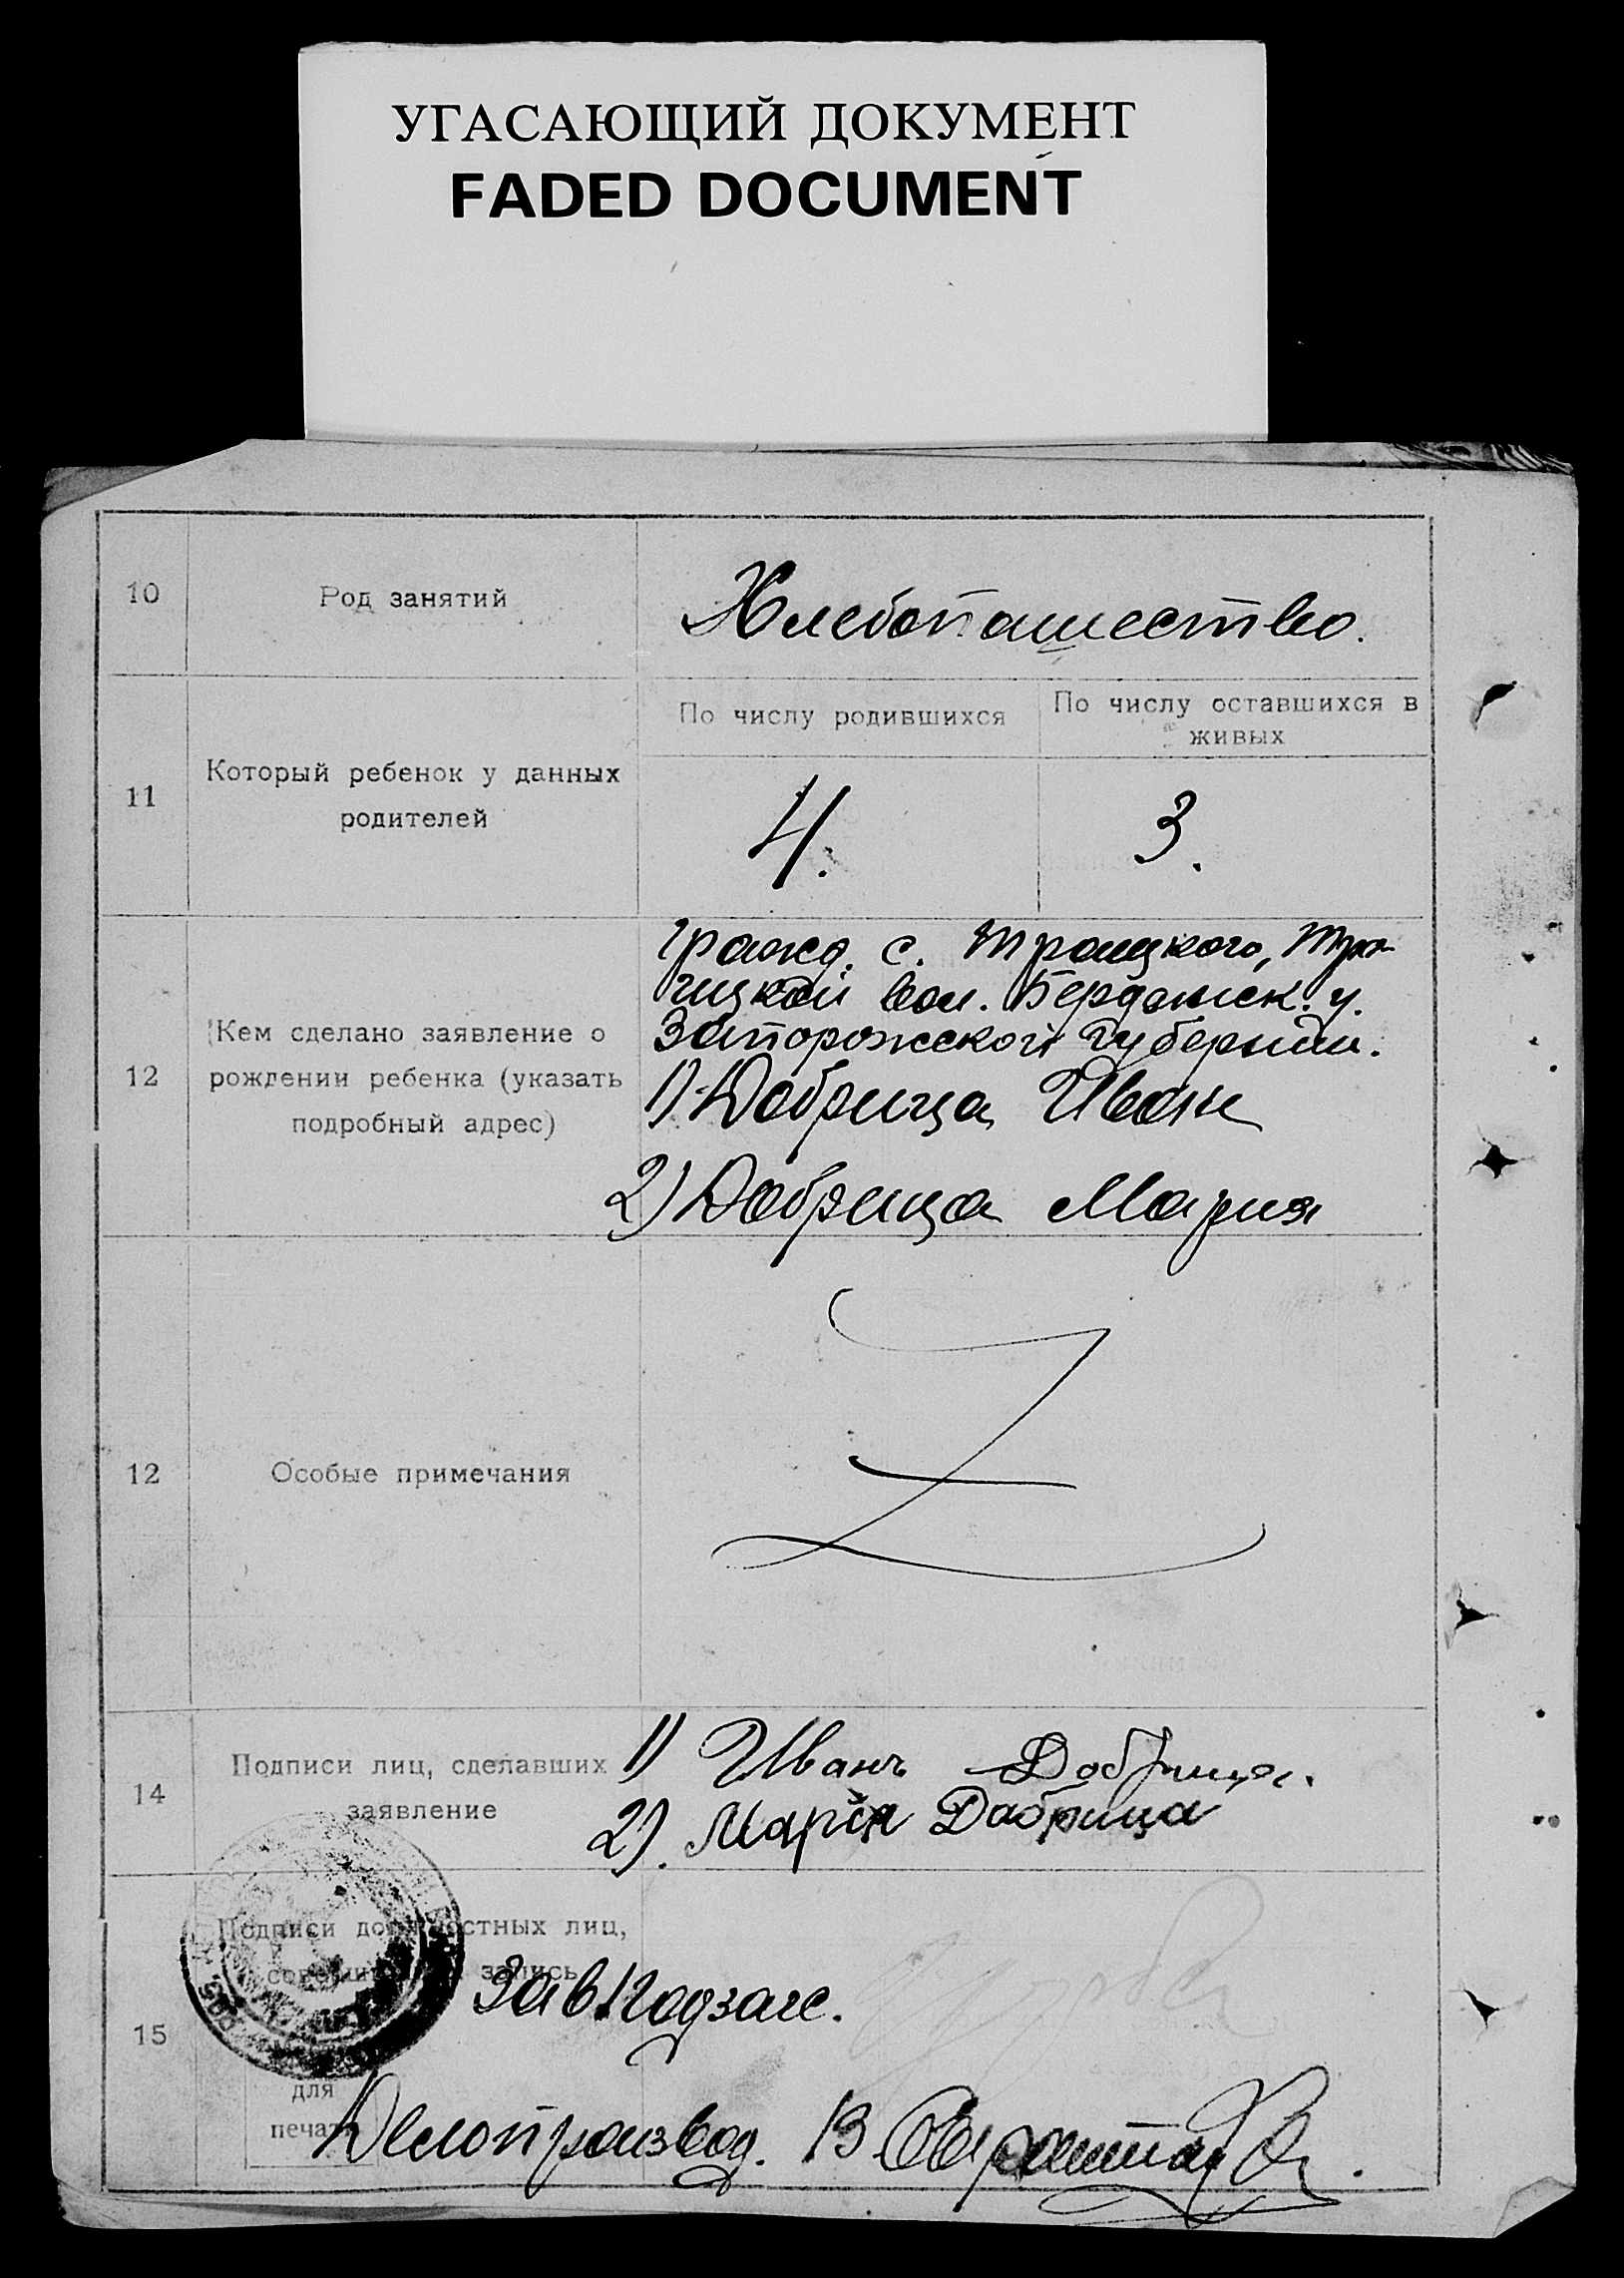 УГАСАЮЩИЙ ДОКУМЕНТ
FADED DOCUMENT
10
Род занятий
Хлебопашество.
11
Который ребенок у данных
родителей
По числу родившихся
По числу оставшихся в
живых
4.
3.
12
Кем сделано заявление о
рождении ребенка (указать
подробный адрес)
Гражд. с. Троицкого, Тро-
ицкой вол. Бердянск. у.
Запорожской губернии.
1) Добрица Иван
2) Добрица Мария
12
Особые примечания
Z
14
Подписи лиц, сделавших
заявление
1) Иванъ Добрица.
2). Марія Добрица
15
Подписи должностных лиц,
запись
Зав. Подзагс.
для
печати
Делопроизвод. В.